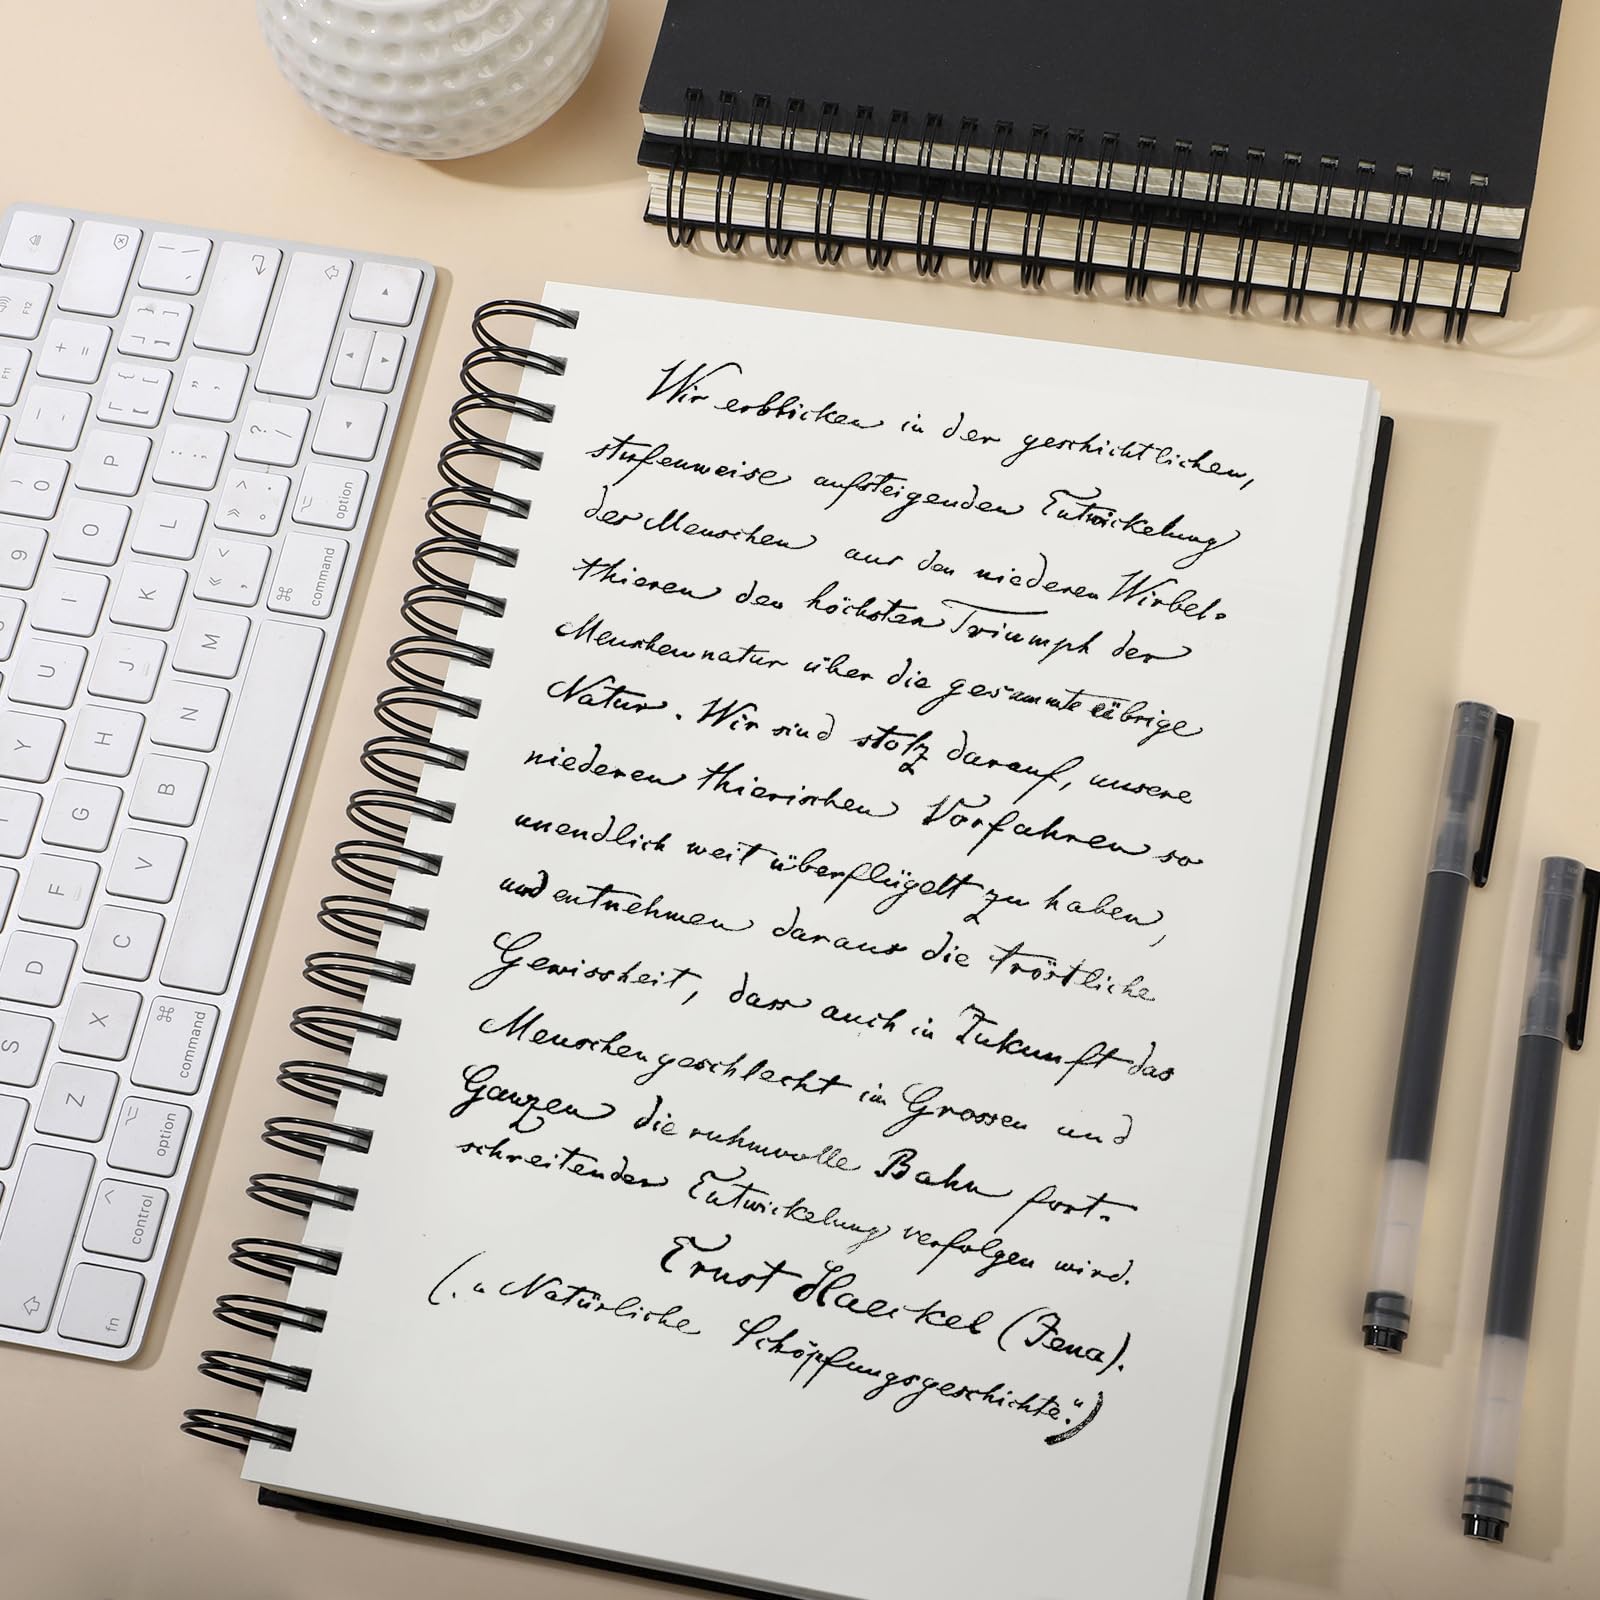 Wir erblicken in der geschichtlichen,
stufenweise aufsteigenden Entwickelung
des Menschen aus den niederen Wirbel-
thieren den höchsten Triumph der
Menschennatur über die gesammte übrige
Natur. Wir sind stolz darauf, unsere
niederen thierischen Vorfahren so
unendlich weit überflügelt zu haben,
und entnehmen daraus die tröstliche
Gewissheit, dass auch in Zukunft das
Menschengeschlecht im Grossen und
Ganzen die ruhmvolle Bahn fort-
schreitender Entwickelung verfolgen wird.
Ernst Haeckel (Jena).
(„Natürliche Schöpfungsgeschichte.“)
F12
F11
option
command
P
O
L
I
K
M
U
J
N
Y
H
B
G
V
F
C
D
X
S
Z
9
0
command
option
control
fn